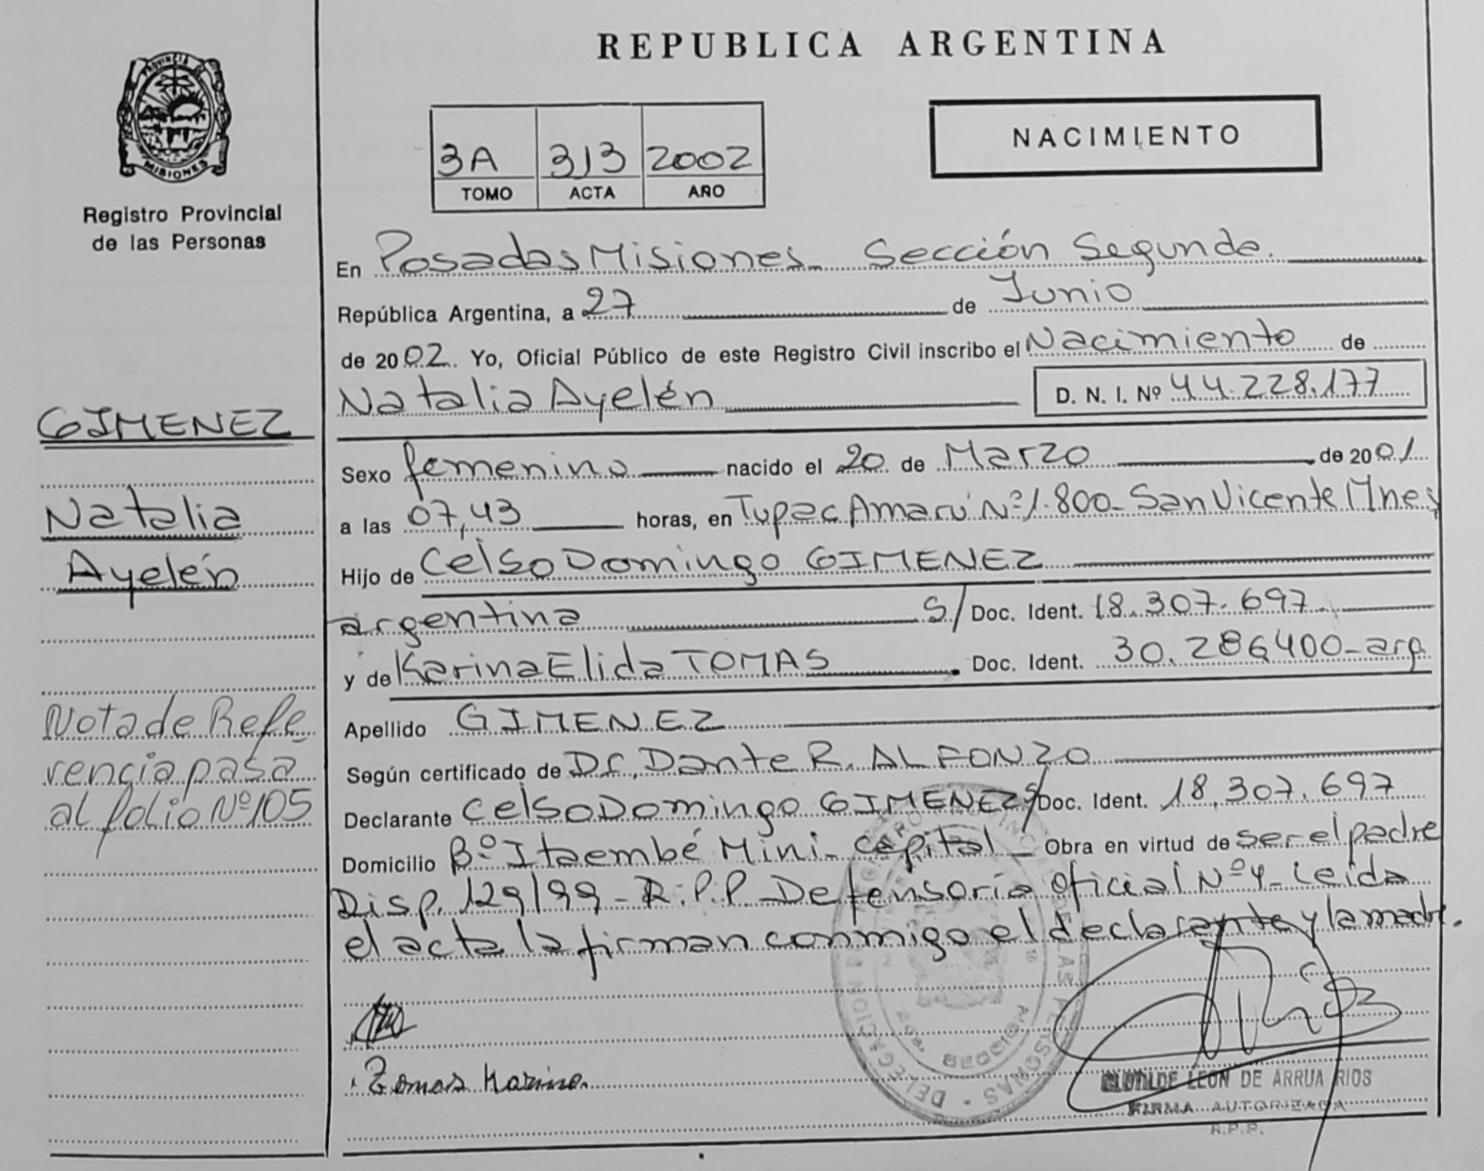 REPUBLICA ARGENTINA
PROVINCIA DE MISIONES
Registro Provincial
de las Personas
3A 313 2002
TOMO ACTA AÑO
NACIMIENTO
GIMENEZ
Natalia
Ayelén
Nota de Refe
rencia pasa
al folio Nº 105
En Posadas Misiones - Sección Segunda.
República Argentina, a 27 de Junio
de 2002. Yo, Oficial Público de este Registro Civil inscribo el Nacimiento de
Natalia Ayelén D. N. I. Nº 44.228.177
Sexo femenino nacido el 20 de Marzo de 2001
a las 07,43 horas, en Tupac Amarú Nº 1.800 - San Vicente Mnes
Hijo de Celso Domingo GIMENEZ
argentina S/ Doc. Ident. 18.307.697
y de Karina Elida TOMAS Doc. Ident. 30.286400 - arg.
Apellido GIMENEZ
Según certificado de Dr. Dante R. ALFONZO
Declarante Celso Domingo GIMENEZ S/ Doc. Ident. 18.307.697
Domicilio Bº Itaembé Mini - Capital - Obra en virtud de ser el padre
Disp. 129/99 - R.P.P. Defensoría Oficial Nº 4 - Leída
el acta la firman conmigo el declarante y la madre.
Tomas Karina
CLOTILDE LEON DE ARRUA RIOS
FIRMA AUTORIZADA
R.P.P.